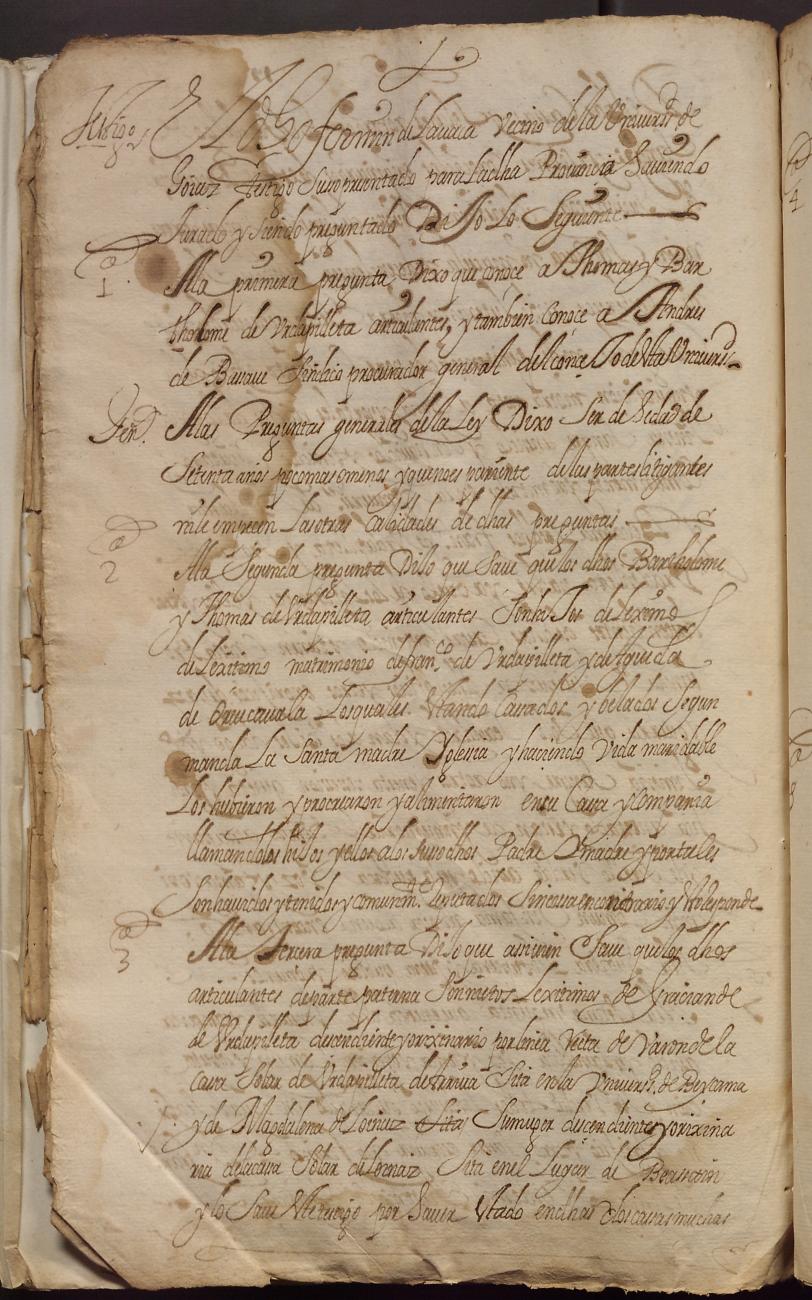 Testigo
8
El dho fermin de Lavaca Vecino de la Univerd. de
Goiaz testigo Susopresentado para Ladha Provança Saviendo
Jurado y Siendo preguntado Dijo Lo Siguiente
1
Ala primera pregunta Dixo que conoce a Thomas y Bar
tholome de Vrdapilleta articulantes, y tambien conoce a Andres
de Sindico procurador general del conçejo desta Univerd.
Alas Preguntas generales de la Ley Dixo Ser de hedad de
Setenta años poco mas o menos y que no es pariente de las partes litigantes
ni le empecen Las otras Calidades de dhas preguntas
2
Ala Segunda pregunta Dijo que Save que los dhos Bartholome
y Thomas de Vrdapilleta articulantes Son hijos
de Lexitimo matrimonio de franco. de Vrdapilleta y de Agueda
de Los quales Estando Casados y Velados Segun
manda La Santa madre Yglesia y haciendo Vida maridable
Los hubieron y procrearon y alimentaron en su Cassa y Compañia
llamandolos hijos y ellos a los susodhos Padre y madre y por tales
Son havidos y tenidos y comunmte. Reputados Sin cosa en contrario y Esto Responde
3
Ala tercera pregunta Dijo que assi vien Save que los dhos
articulantes de parte paterna Son nietos Lexitimos de Graciande
de Vrdapilleta descendiente y orixinario por linea Recta de Varon de la
cassa Solar de Vrdapilleta de Sita en la Universd. de Beyçama
y de Magdalena de Loinaz Su muger descendiente y orixina
ria de la cassa Solar de Loinaz Sita en el Lugar de Beassain
y lo Save El testigo por haver Estado en dhas dos cassas muchas